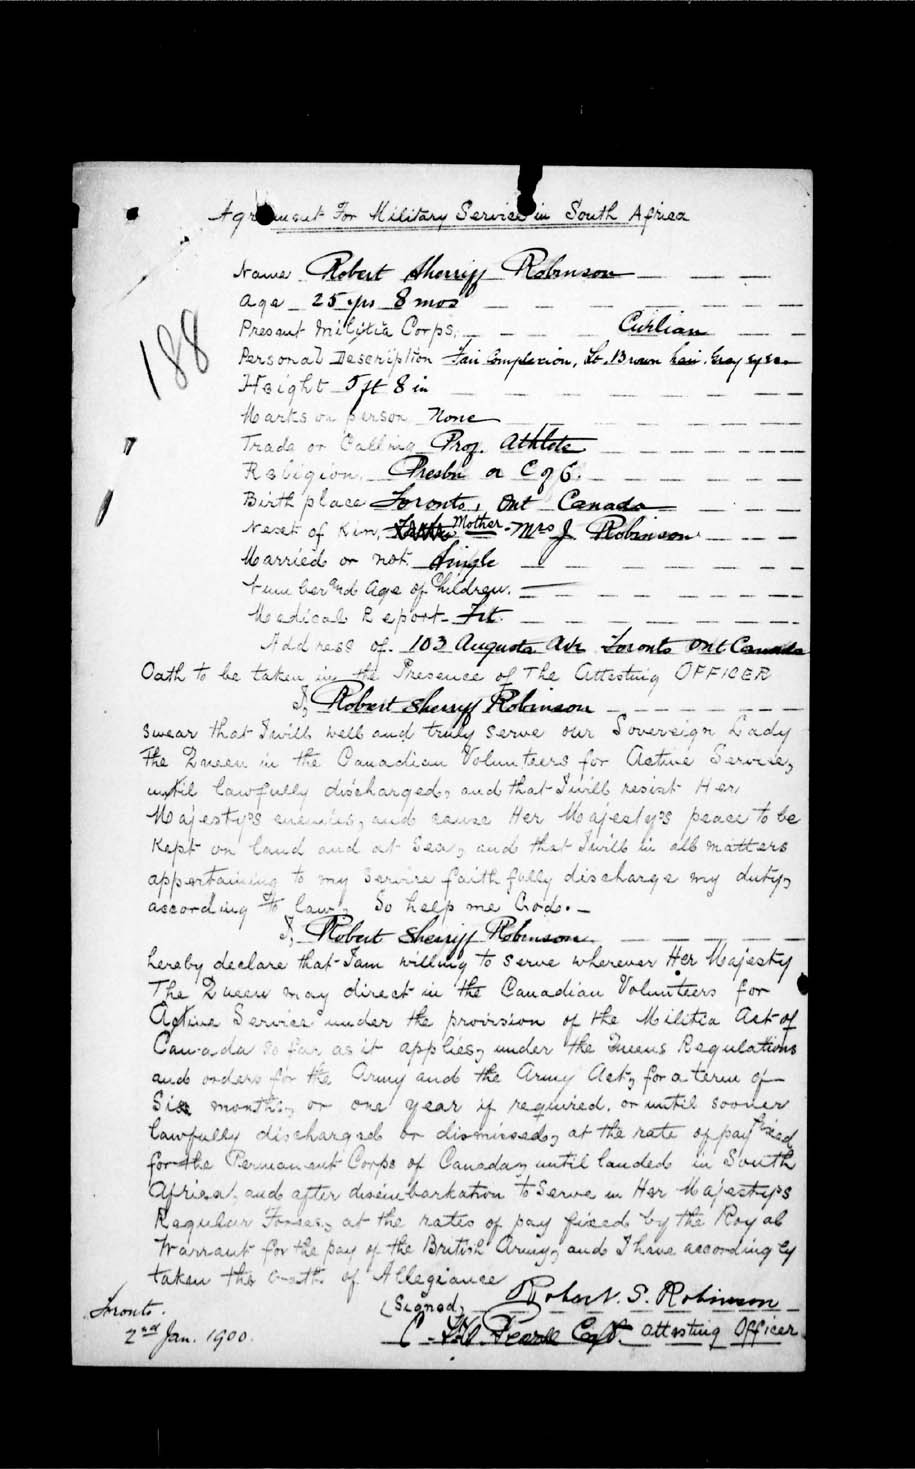 Agreement For Military Service in South Africa
Name Robert Sherriff Robinson
Age 25 yrs 8 mos
Present Militia Corps. Civilian
188
Personal Description Fair Complexion, Lt. Brown hair. Gray eyes
Height 5 ft 8 in
Marks on person None
Trade or Calling Prof. Athlete
Religion. Presbn or C of E.
Birth place Toronto, Ont Canada
Next of Kin, Mother - Mrs J Robinson
Married or not. Single
Number and Age of Children.
Medical Report - Fit.
Address of. 103 Augusta Ave Toronto Ont Canada
Oath to be taken in the Presence of The Attesting OFFICER
I, Robert Sherriff Robinson
swear that I will well and truly serve our Sovereign Lady
The Queen in the Canadian Volunteers for Active Service,
until lawfully discharged, and that I will resist Her
Majesty's enemies, and cause Her Majesty's peace to be
Kept on land and at Sea, and that I will in all matters
appertaining to my Service faithfully discharge my duty,
according to law. So help me God. -
I, Robert Sherriff Robinson
hereby declare that I am willing to serve wherever Her Majesty
The Queen may direct in the Canadian Volunteers for
Active Service under the provision of the Militia Act of
Canada so far as it applies, under the Queens Regulations
and orders for the Army and the Army Act, for a term of
Six months, or one year if required, or until sooner
lawfully discharged or dismissed, at the rate of pay fixed
for the Permanent Corps of Canada, until landed in South
Africa, and after disembarkation to Serve in Her Majesty's
Regular Forces, at the rates of pay fixed by the Royal
Warrant for the pay of the British Army, and I have accordingly
taken the Oath of Allegiance
(Signed) Robert. S. Robinson
Toronto.
2nd Jan. 1900.
Capt. Attesting Officer